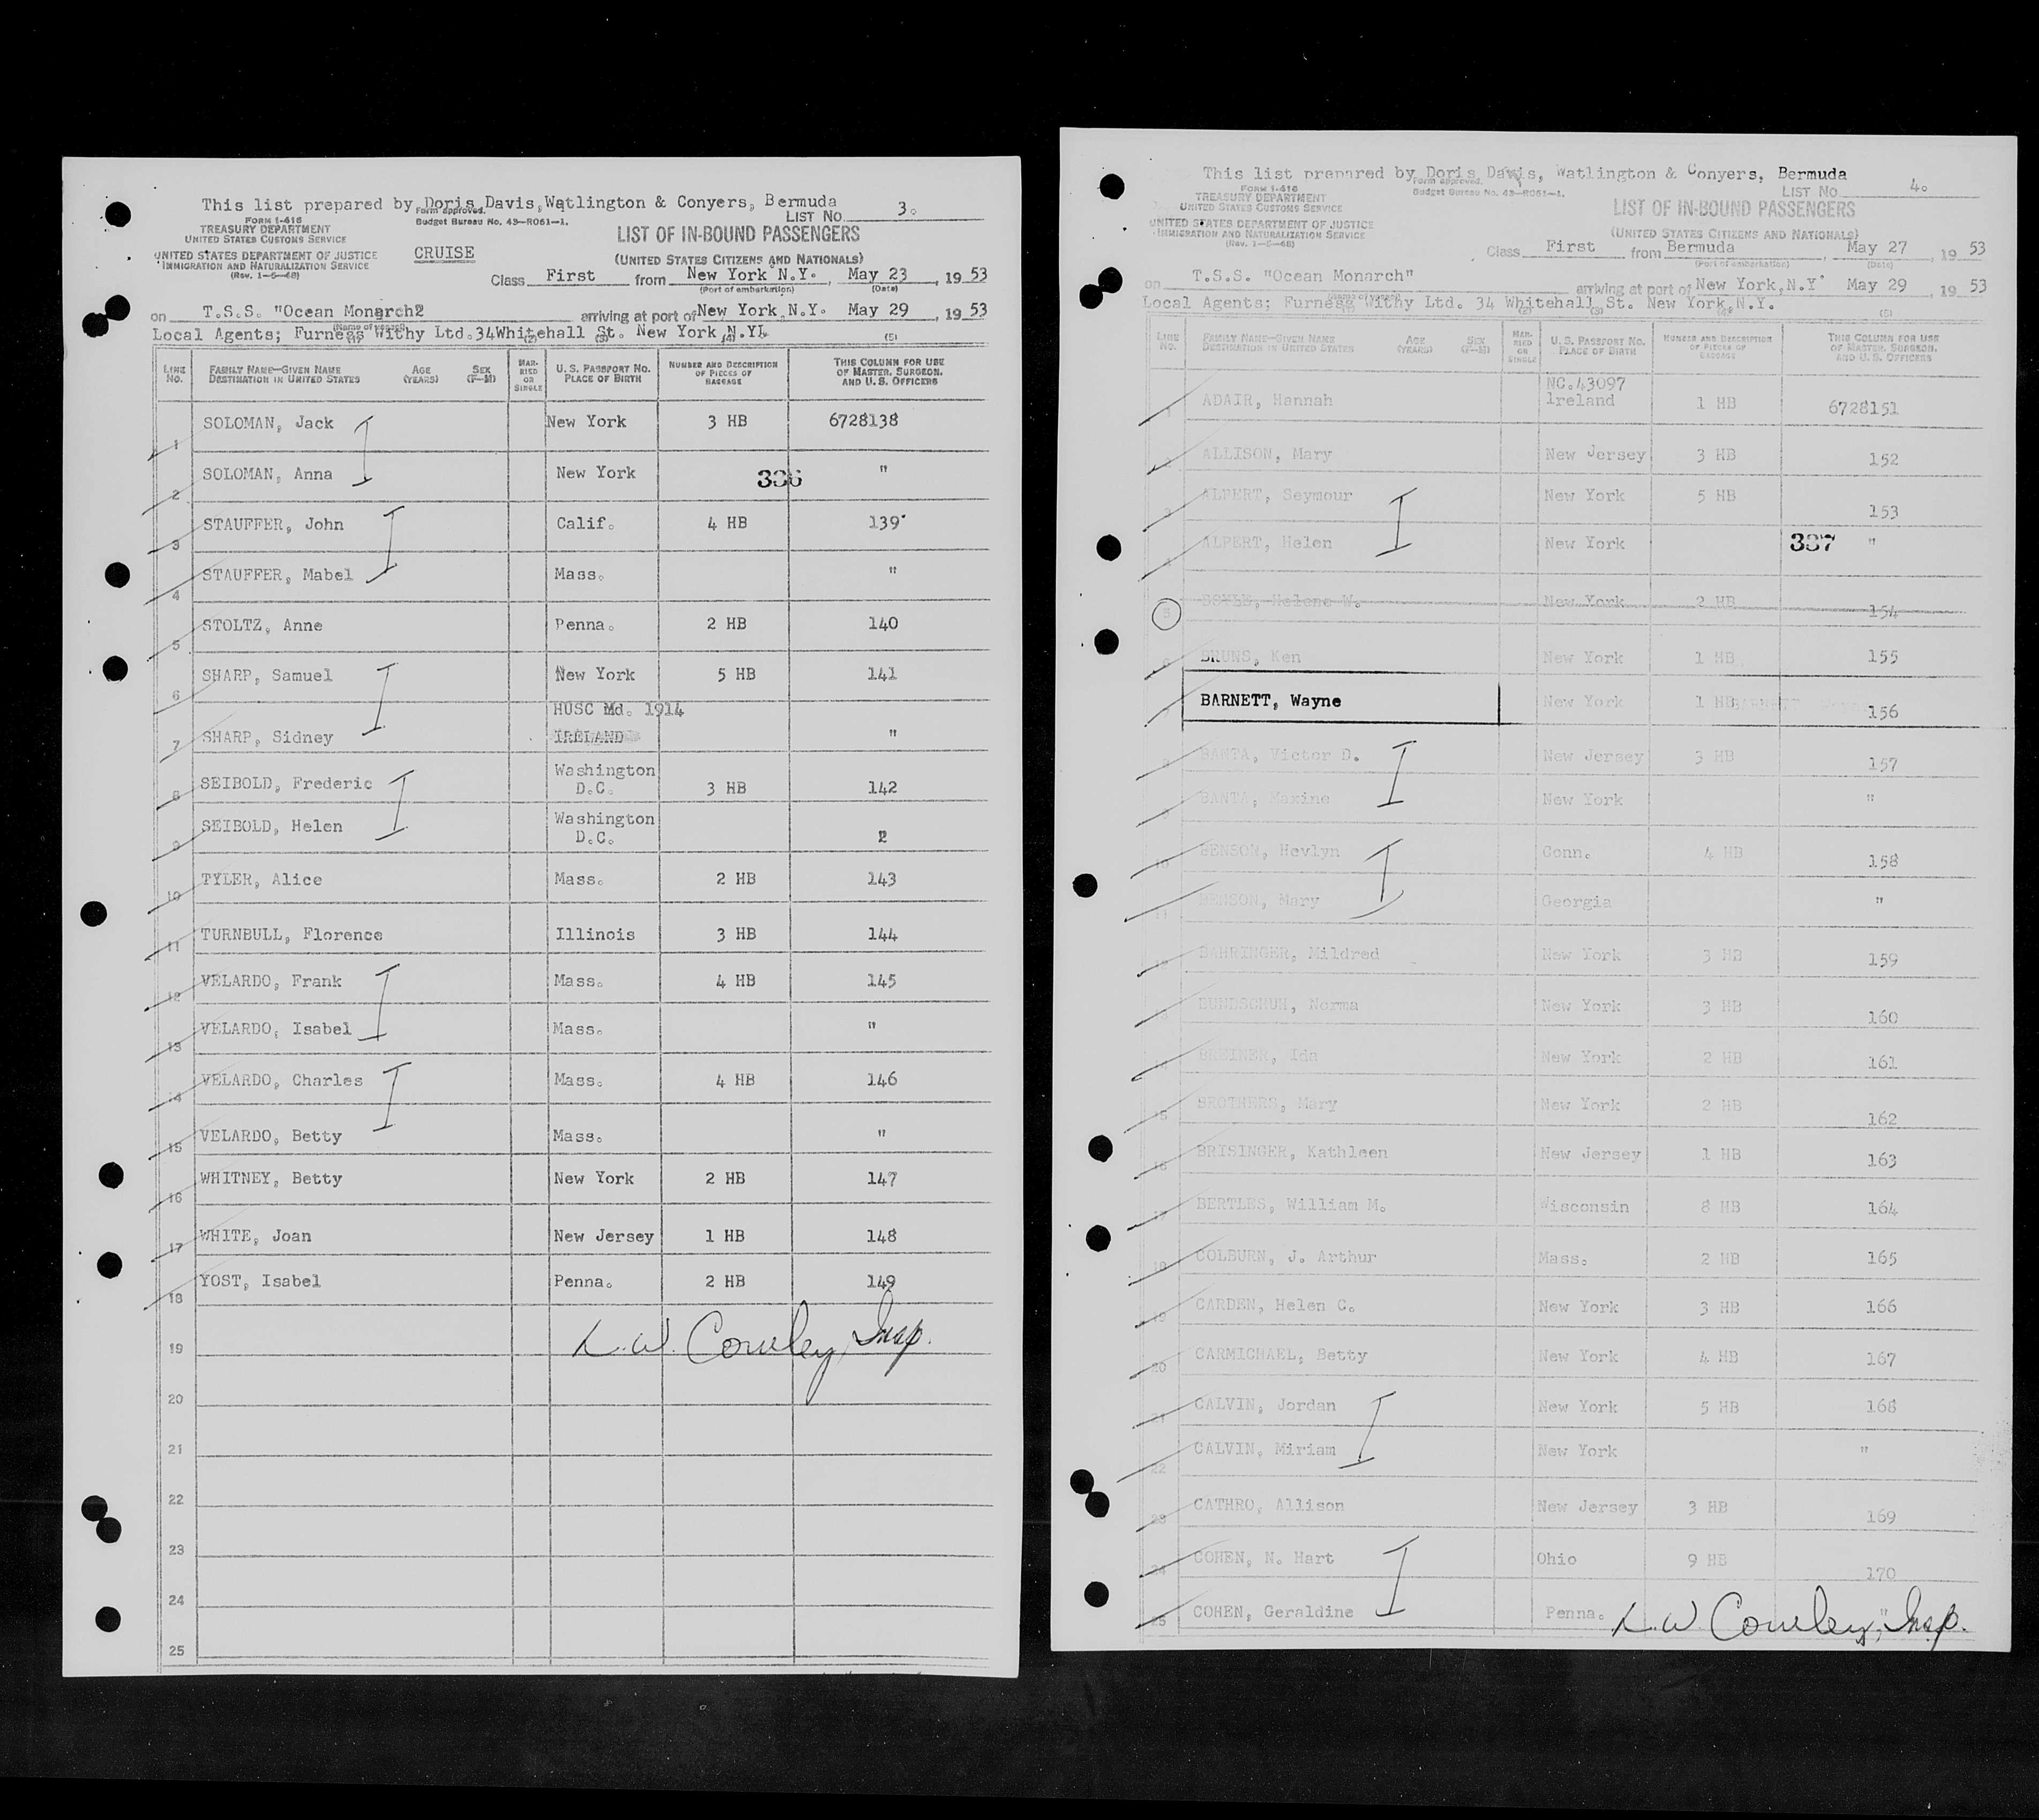 This list prepared by Doris Davis, Watlington & Conyers, Bermuda
FORM I-418
TREASURY DEPARTMENT
UNITED STATES CUSTOMS SERVICE
UNITED STATES DEPARTMENT OF JUSTICE
IMMIGRATION AND NATURALIZATION SERVICE
Form approved.
Budget Bureau No. 43—R061—1.
CRUISE
LIST NO. 3.
LIST OF IN-BOUND PASSENGERS
(UNITED STATES CITIZENS AND NATIONALS)
Class First from New York N.Y., May 23, 1953
(Port of embarkation) (Date)
on T.S.S. "Ocean Monarch2 arriving at port of New York, N.Y. May 29, 1953
(Name of vessel)
Local Agents; Furness Withy Ltd. 34 Whitehall St. New York, N.Y.
(1) (2) (3) (4) (5)
LINE NO. FAMILY NAME—GIVEN NAME DESTINATION IN UNITED STATES AGE (YEARS) SEX (F—M) MARRIED OR SINGLE U. S. PASSPORT NO. PLACE OF BIRTH NUMBER AND DESCRIPTION OF PIECES OF BAGGAGE THIS COLUMN FOR USE OF MASTER, SURGEON, AND U. S. OFFICERS
1 SOLOMAN, Jack New York 3 HB 6728138
2 SOLOMAN, Anna New York 336 "
3 STAUFFER, John Calif. 4 HB 139
4 STAUFFER, Mabel Mass. "
5 STOLTZ, Anne Penna. 2 HB 140
6 SHARP, Samuel New York 5 HB 141
HUSC Md. 1914
7 SHARP, Sidney IRELAND "
8 SEIBOLD, Frederic Washington D.C. 3 HB 142
9 SEIBOLD, Helen Washington D.C. 2
10 TYLER, Alice Mass. 2 HB 143
11 TURNBULL, Florence Illinois 3 HB 144
12 VELARDO, Frank Mass. 4 HB 145
13 VELARDO, Isabel Mass. "
14 VELARDO, Charles Mass. 4 HB 146
15 VELARDO, Betty Mass. "
16 WHITNEY, Betty New York 2 HB 147
17 WHITE, Joan New Jersey 1 HB 148
18 YOST, Isabel Penna. 2 HB 149
19 L.W. Cowley, Insp.
20
21
22
23
24
25
This list prepared by Doris Davis, Watlington & Conyers, Bermuda
FORM I-418
TREASURY DEPARTMENT
UNITED STATES CUSTOMS SERVICE
UNITED STATES DEPARTMENT OF JUSTICE
IMMIGRATION AND NATURALIZATION SERVICE
Form approved.
Budget Bureau No. 43—R061—1.
LIST NO. 4.
LIST OF IN-BOUND PASSENGERS
(UNITED STATES CITIZENS AND NATIONALS)
Class First from Bermuda, May 27, 1953
(Port of embarkation) (Date)
on T.S.S. "Ocean Monarch" arriving at port of New York, N.Y May 29, 1953
Local Agents; Furness Withy Ltd. 34 Whitehall St. New York, N.Y.
LINE NO. FAMILY NAME—GIVEN NAME DESTINATION IN UNITED STATES AGE (YEARS) SEX (F—M) MARRIED OR SINGLE U. S. PASSPORT NO. PLACE OF BIRTH NUMBER AND DESCRIPTION OF PIECES OF BAGGAGE THIS COLUMN FOR USE OF MASTER, SURGEON, AND U. S. OFFICERS
NC.43097
1 ADAIR, Hannah Ireland 1 HB 6728151
2 ALLISON, Mary New Jersey 3 HB 152
3 ALPERT, Seymour New York 5 HB 153
4 ALPERT, Helen New York 337 "
5 BOYLE, Helene W. New York 2 HB 154
6 BRUNS, Ken New York 1 HB 155
7 BARNETT, Wayne New York 1 HB 156
8 BANTA, Victor D. New Jersey 3 HB 157
9 BANTA, Maxine New York "
10 BENSON, Hevlyn Conn. 4 HB 158
11 BENSON, Mary Georgia "
12 BAHRINGER, Mildred New York 3 HB 159
13 BUNDSCHUH, Norma New York 3 HB 160
14 BREINER, Ida New York 2 HB 161
15 BROTHERS, Mary New York 2 HB 162
16 BRISINGER, Kathleen New Jersey 1 HB 163
17 BERTLES, William M. Wisconsin 8 HB 164
18 COLBURN, J. Arthur Mass. 2 HB 165
19 CARDEN, Helen C. New York 3 HB 166
20 CARMICHAEL, Betty New York 4 HB 167
21 CALVIN, Jordan New York 5 HB 168
22 CALVIN, Miriam New York "
23 CATHRO, Allison New Jersey 3 HB 169
24 COHEN, N. Hart Ohio 9 HB 170
25 COHEN, Geraldine Penna. "
L.W. Cowley, Insp.